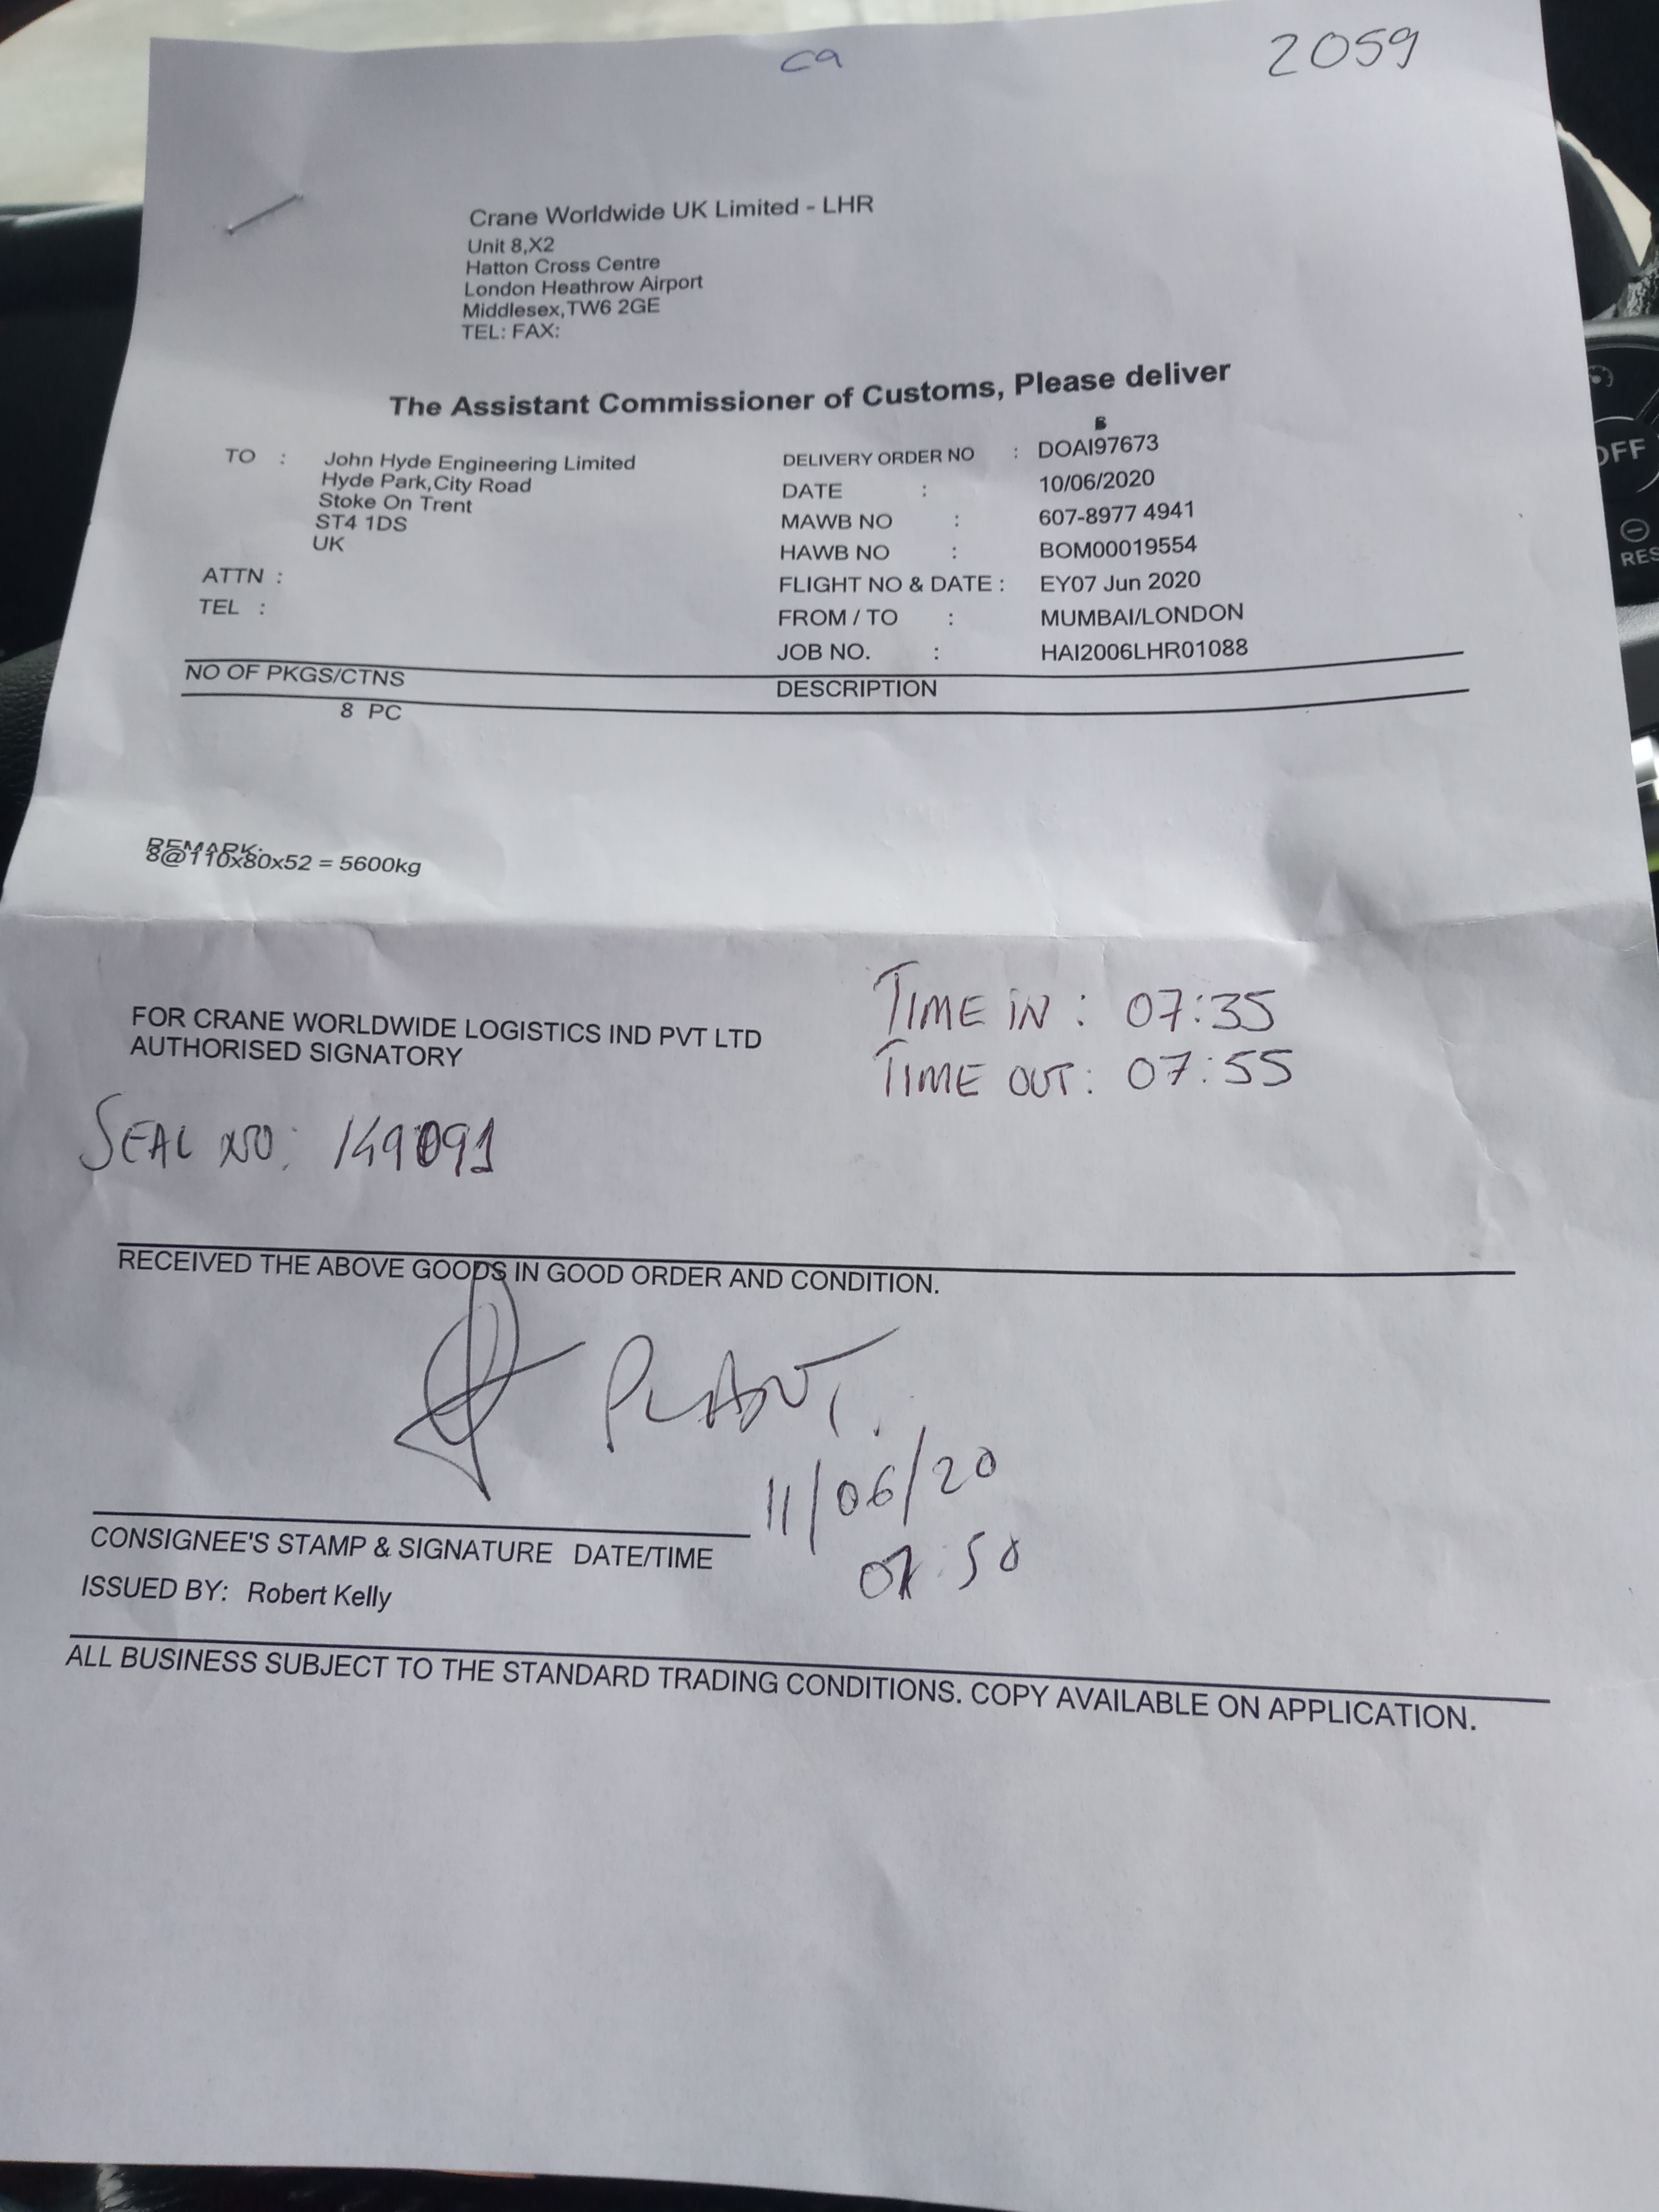 ca
2059
Crane Worldwide UK Limited - LHR
Unit 8,X2
Hatton Cross Centre
London Heathrow Airport
Middlesex,TW6 2GE
TEL: FAX:
The Assistant Commissioner of Customs, Please deliver
TO : John Hyde Engineering Limited
Hyde Park,City Road
Stoke On Trent
ST4 1DS
UK
ATTN :
TEL :
DELIVERY ORDER NO : DOAI97673
DATE : 10/06/2020
MAWB NO : 607-8977 4941
HAWB NO : BOM00019554
FLIGHT NO & DATE : EY07 Jun 2020
FROM / TO : MUMBAI/LONDON
JOB NO. : HAI2006LHR01088
NO OF PKGS/CTNS DESCRIPTION
8 PC
REMARK:
8@110x80x52 = 5600kg
FOR CRANE WORLDWIDE LOGISTICS IND PVT LTD
AUTHORISED SIGNATORY
TIME IN : 07:35
TIME OUT: 07:55
SEAL NO: 149091
RECEIVED THE ABOVE GOODS IN GOOD ORDER AND CONDITION.
PLANT.
11/06/20
07:50
CONSIGNEE'S STAMP & SIGNATURE DATE/TIME
ISSUED BY: Robert Kelly
ALL BUSINESS SUBJECT TO THE STANDARD TRADING CONDITIONS. COPY AVAILABLE ON APPLICATION.
OFF
RES